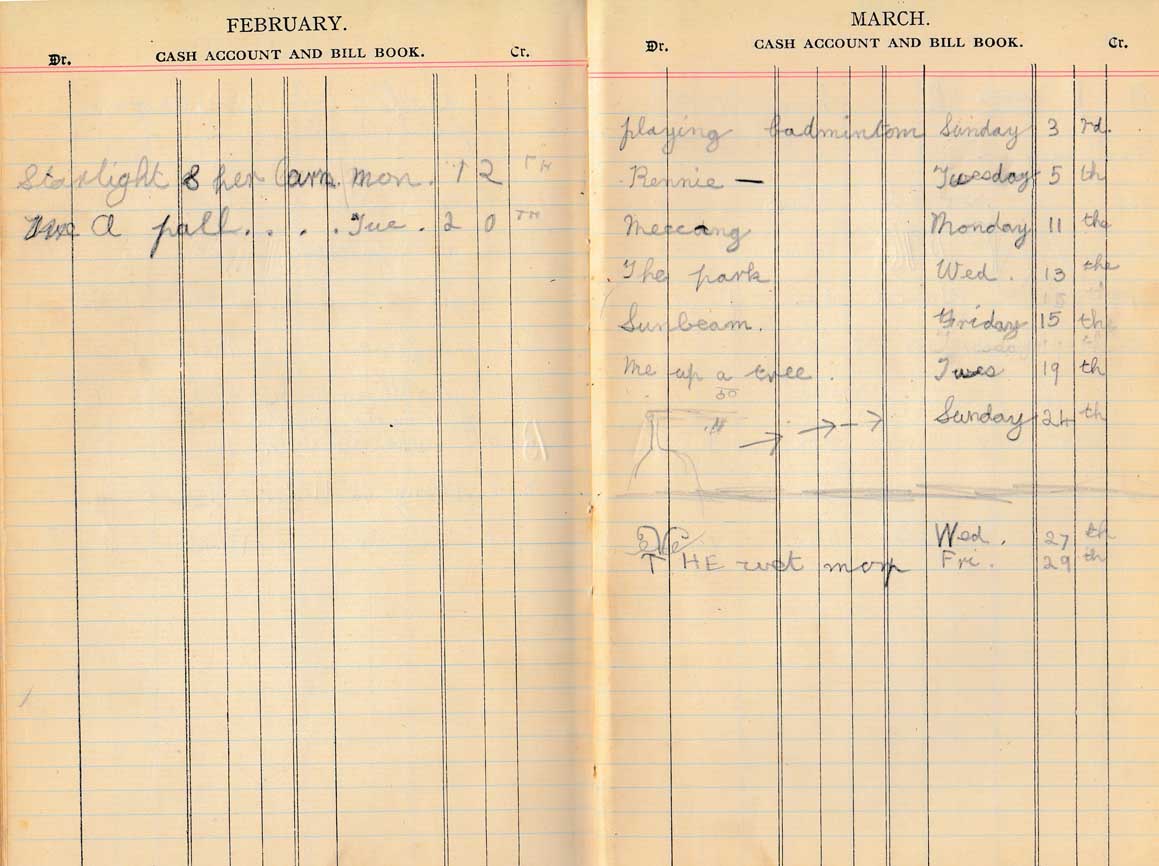 FEBRUARY.
Dr. CASH ACCOUNT AND BILL BOOK. Cr.
Starlight & her barn mon. 12 TH
A pall. . . . . Tue. 20 TH
MARCH.
Dr. CASH ACCOUNT AND BILL BOOK. Cr.
playing badminton Sunday 3 rd.
Rennie — Tuesday 5 th
Meccang Monday 11 the
The park Wed. 13 the
Sunbeam. Friday 15 th
Me up a tree. Tues 19 th
30
Sunday 24 th
Wed. 27 th
THE wet mop Fri. 29 th